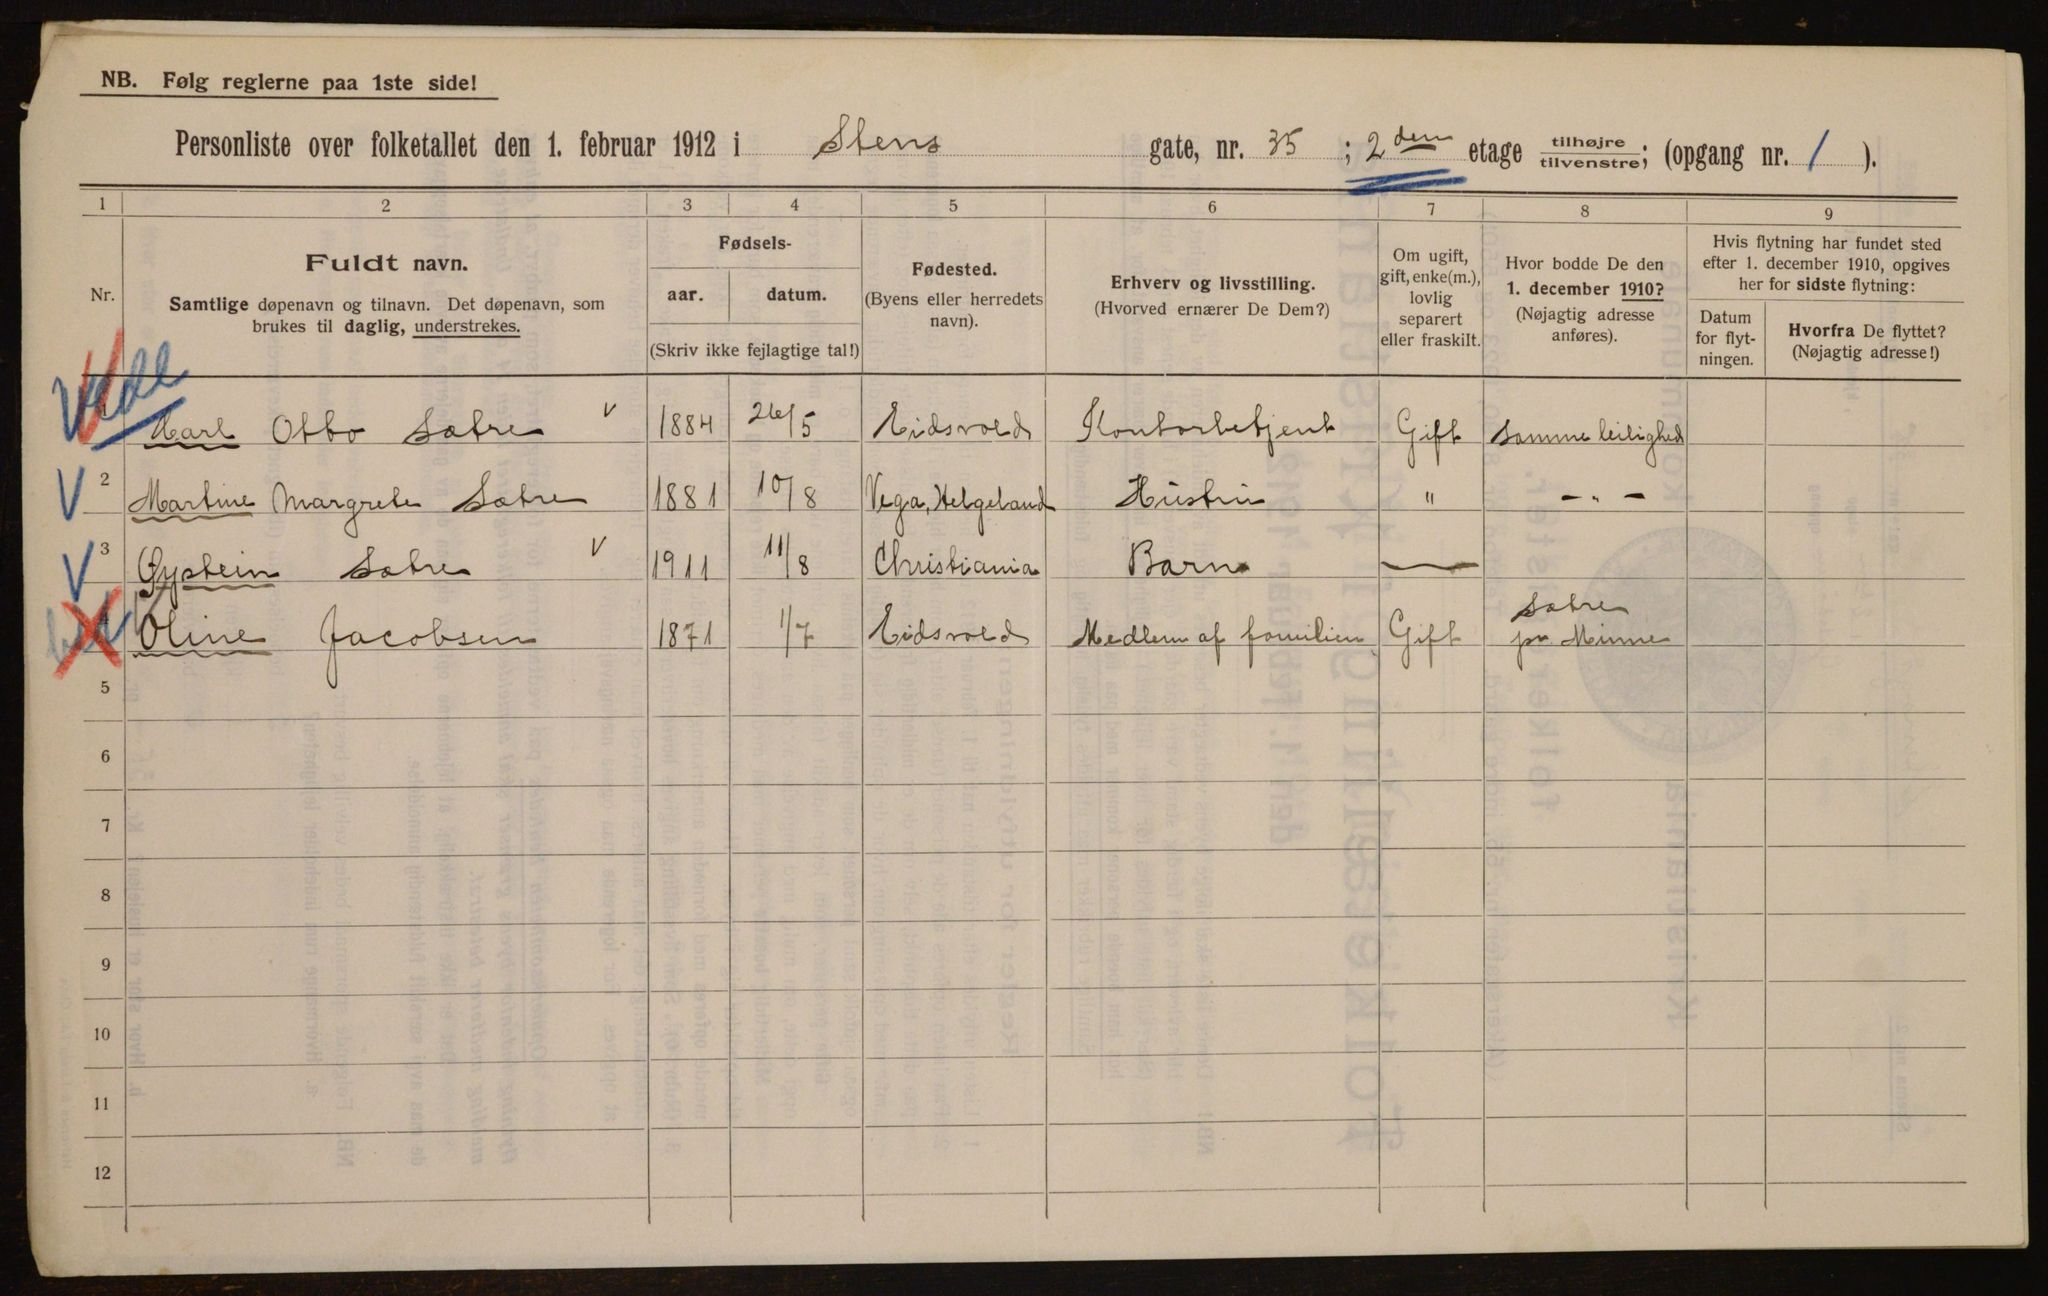 NB. Følg reglerne paa 1ste side!
Personliste over folketallet den 1. februar 1912 i Stens gate, nr. 35 ; 2den etage tilhøjre/tilvenstre; (opgang nr. 1 ).
1 2 3 4 5 6 7 8 9
Nr.
Fuldt navn.
Samtlige døpenavn og tilnavn. Det døpenavn, som
brukes til daglig, understrekes.
Fødsels-
aar. datum.
(Skriv ikke fejlagtige tal!)
Fødested.
(Byens eller herredets
navn).
Erhverv og livsstilling.
(Hvorved ernærer De Dem?)
Om ugift,
gift, enke(m.),
lovlig
separert
eller fraskilt.
Hvor bodde De den
1. december 1910?
(Nøjagtig adresse
anføres).
Hvis flytning har fundet sted
efter 1. december 1910, opgives
her for sidste flytning:
Datum
for flyt-
ningen.
Hvorfra De flyttet?
(Nøjagtig adresse!)
1 Karl Otto Sætre 1884 26/5 Eidsvold Kontorbetjent Gift Samme leilighed
2 Martine Margrete Sætre 1881 10/8 Vega, Helgeland Hustru " - " -
3 Øystein Sætre 1911 11/8 Christiania Barn —
4 Oline Jacobsen 1871 1/7 Eidsvold Medlem af familien Gift Sætre
pr Minne
5
6
7
8
9
10
11
12